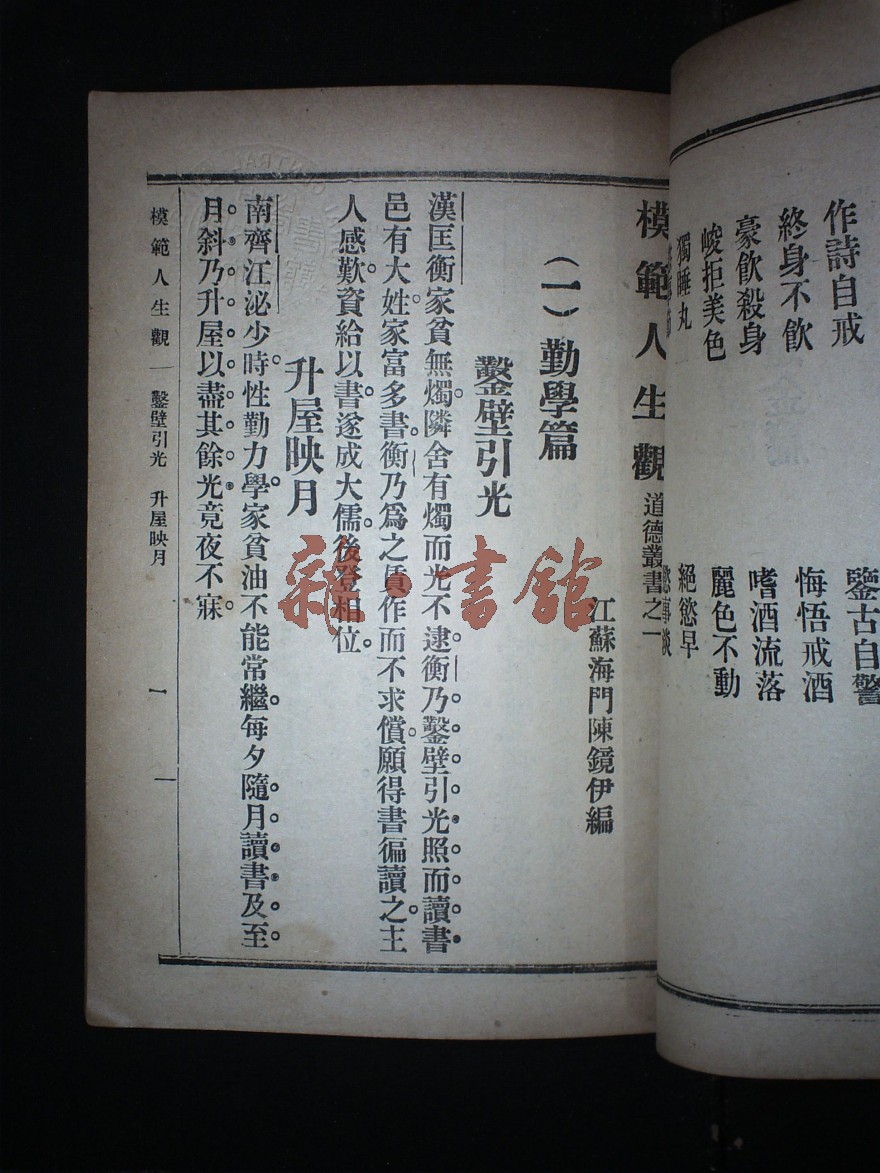 作詩自戒 鑒古自警
終身不飲 悔悟戒酒
豪飲殺身 嗜酒流落
峻拒美色 麗色不動
獨睡丸 絕慾早
模範人生觀 道德叢書之一
江蘇海門陳鏡伊編
(一)勤學篇
鑿壁引光
漢匡衡家貧無燭。隣舍有燭而光不逮。衡乃鑿壁引光照而讀書
邑有大姓。家富多書。衡乃爲之賃作而不求償。願得書徧讀之。主
人感歎。資給以書。遂成大儒。後登相位。
升屋映月
南齊江泌少時。性勤力學。家貧油不能常繼。每夕隨月讀書。及至
月斜。乃升屋以盡其餘光。竟夜不寐。
模範人生觀 一 鑿壁引光 升屋映月 一
雜·書館